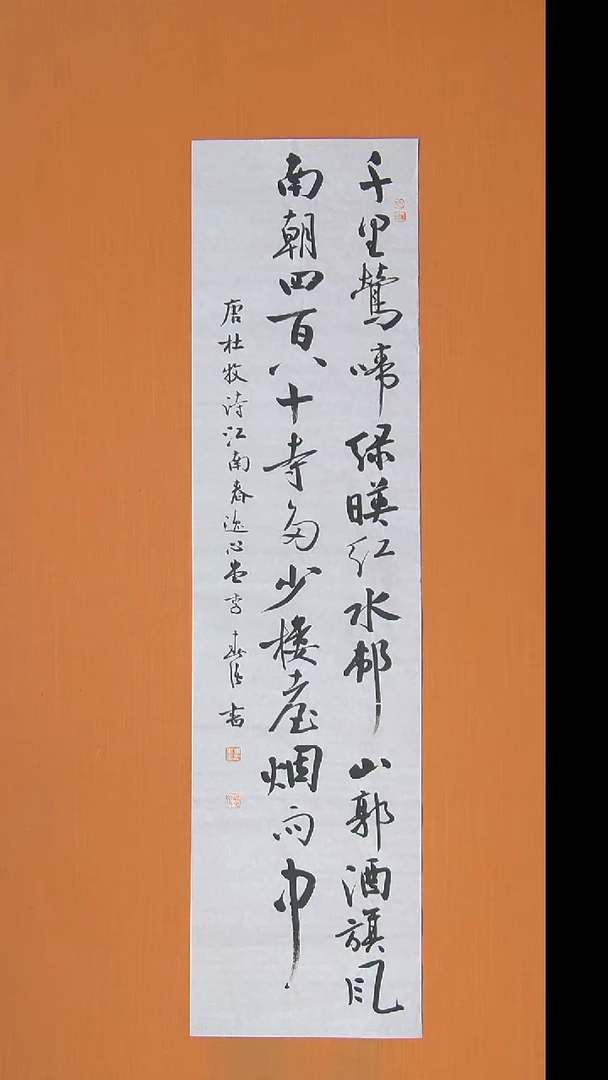 千里鶯啼绿暎红水邨山郭酒旗风
南朝四百八十寺多少楼臺烟雨中
唐杜牧诗江南春逸心堂李 书